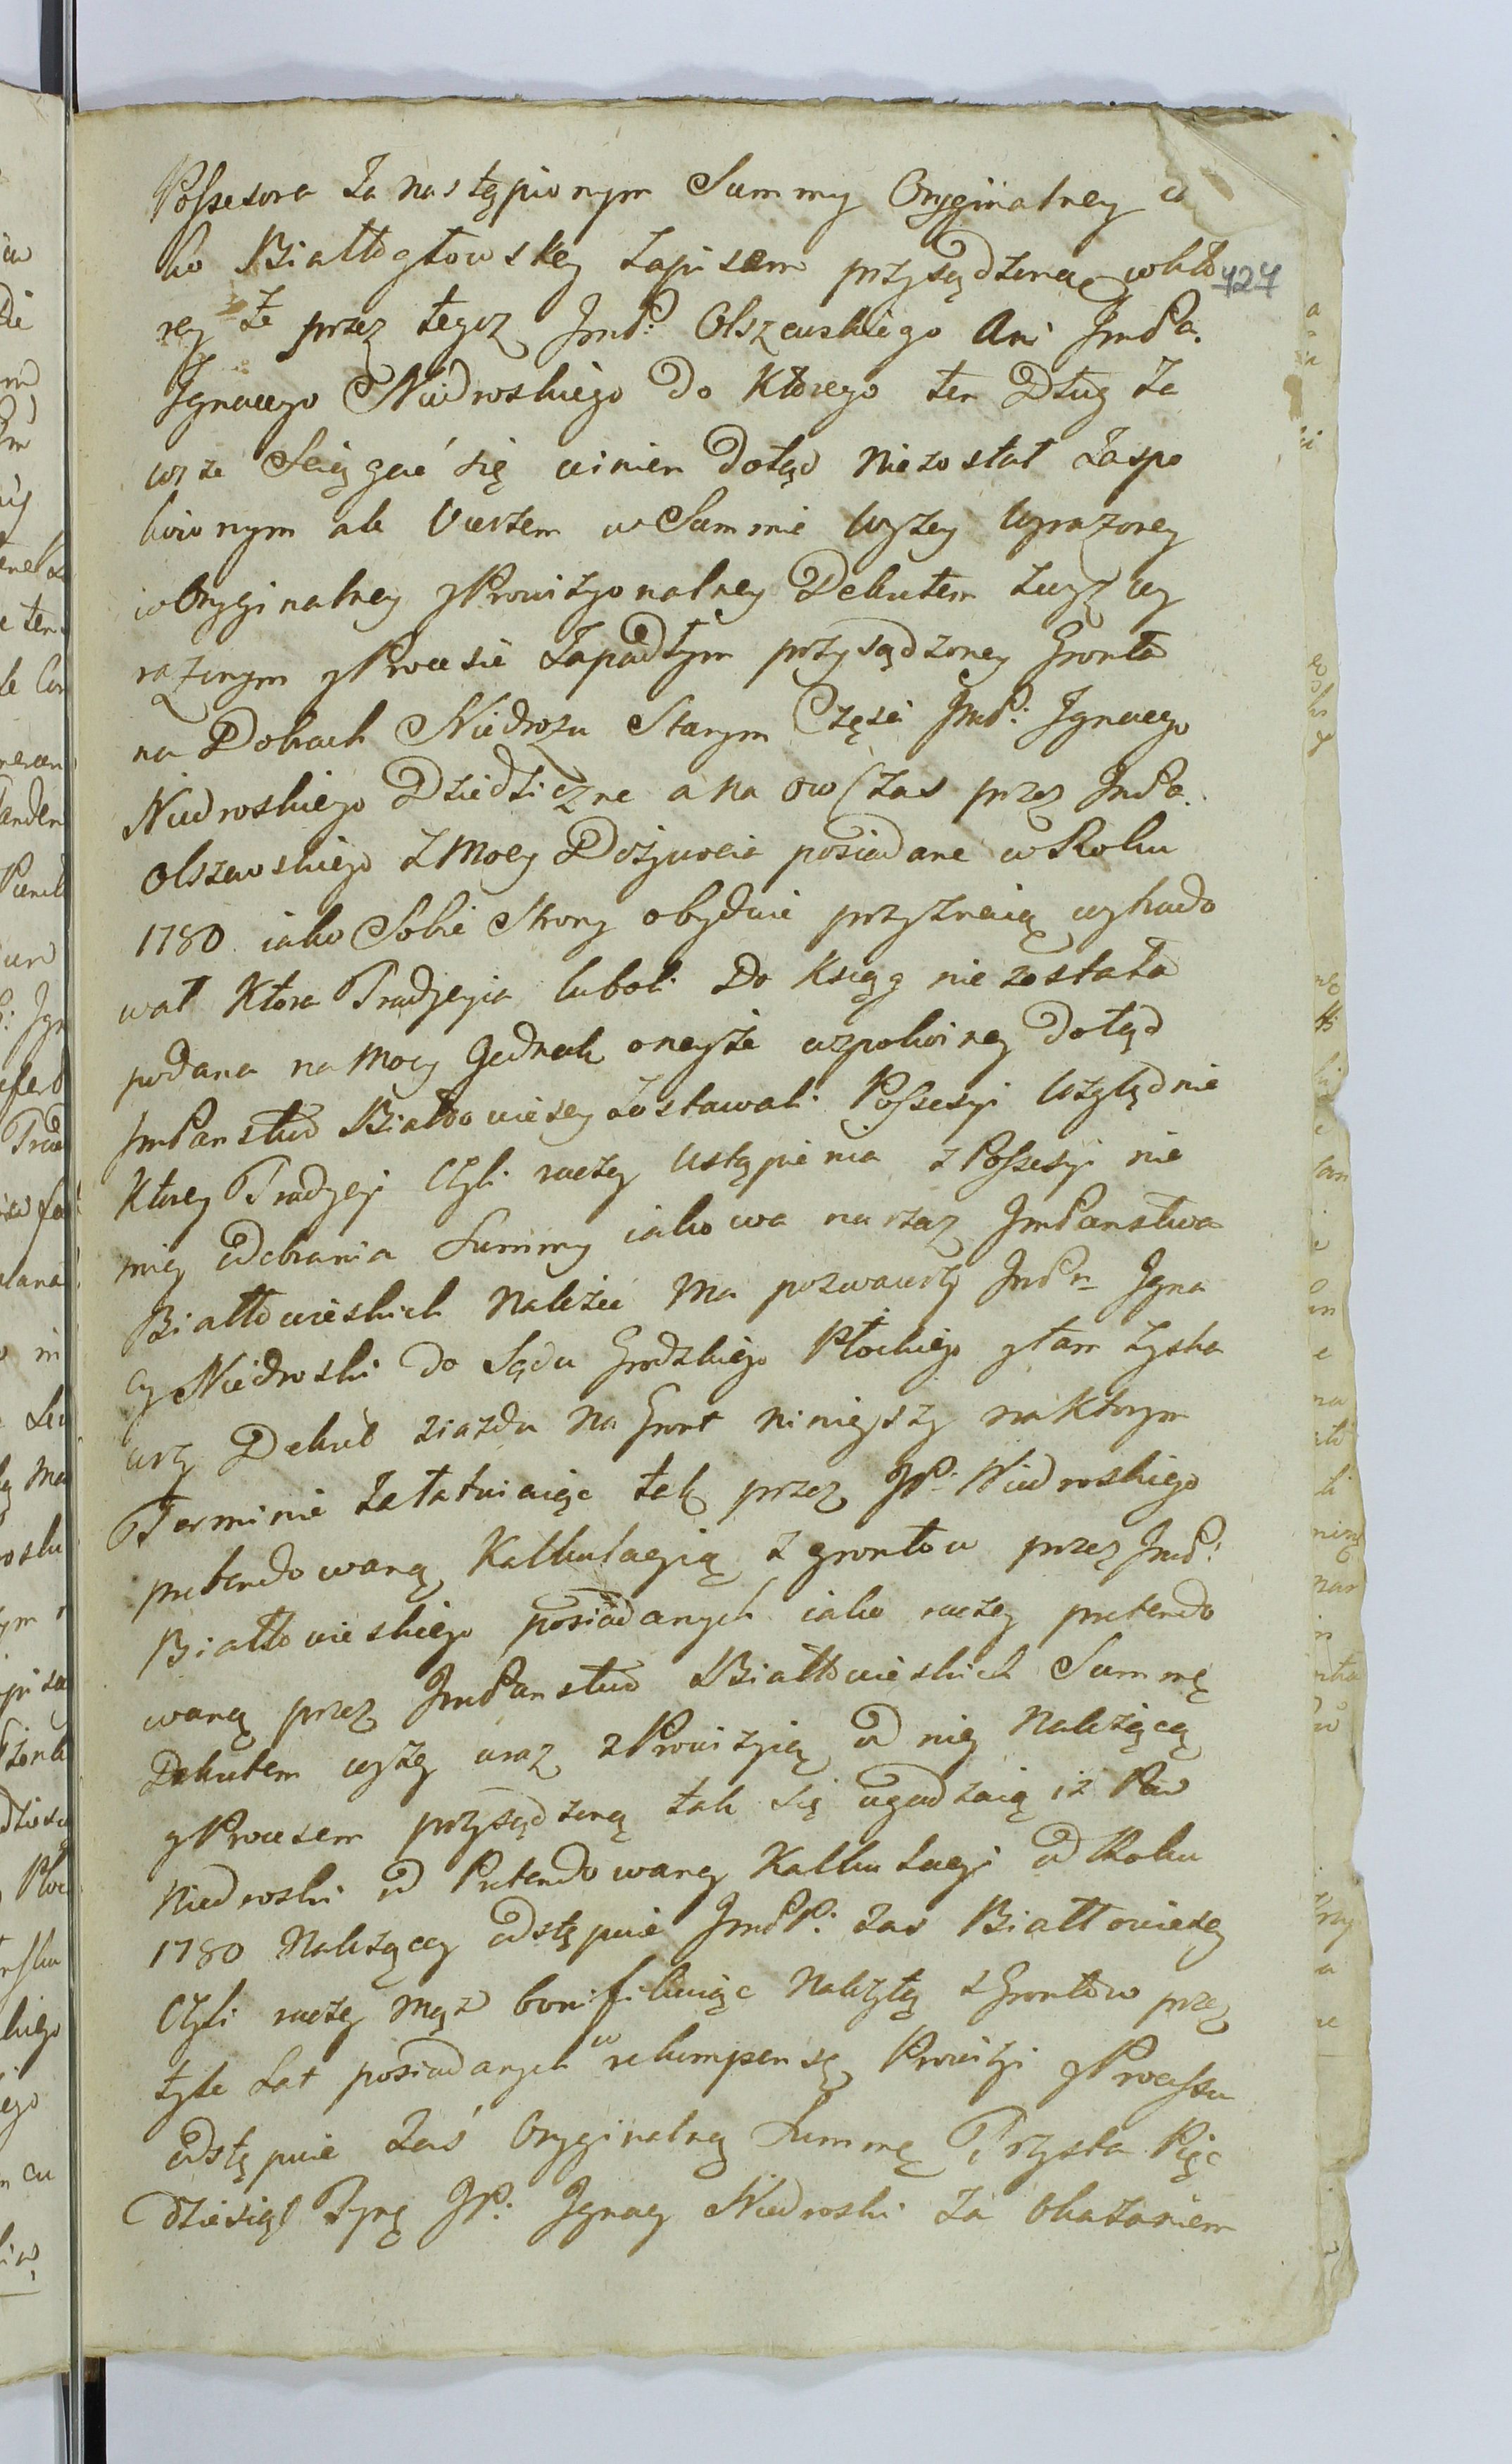 Possesora za nastąpionym Summy Oryginalney
ko Białłogłowskey zapisem przysądzoney wktó
427
rey że przez tegoz JmP: Olszewskiego Ani JmPa.
Ignacego Niedroskiego do Którego ten Dług za
wsze Sciągać się winien dotąd niezostał Zaspo
koionym ale Vierzem w Summie wyzey wyrazoney
w Oryginalney y Prowizyonalney Dekretem zwyz wy
razonym y Processie zapadłym przysądzoney Gronta
na Dobrach Niedrozu Starym Części JmP: Ignacego
Niedroskiego Dziedziczne a na ow Czas przez JmPa.
Olszewskiego z Mocy Dożywocia posiadane w Roku
1780 iako Sobie Strony obydwie przyznaią
wał Która Tradycyia luboli do Ksiąg niezostała
podana na Mocy Jednak oneyże wspokoiney dotąd
JmPanstwo Białłowiescy zostawali Possesyi Względnie
Którey Tradycyi Czyli raczey Ustąpienia z Possesyi nie
mniey odebrania Summy iakowa na rzaz JmPanstwa
Białłowieskich Należec Ma pozwawszy JmPn Igna
cy Niedroski do Sądu Grodzkiego Płockiego y tam zyska
wszy Dekret ziazdu na Gront ninieyszy na Ktorym
Terminie załatwiaiąc tak przez JP: Niedroskiego
pretendowaną Kalkulacyią z grontow przez JmP:
Białłowieskiego posiadanych iako raczey pretendo
waną przez JmPanstwo Białłowieskich Summę
Dekretem wyzey wraz z Prowizyią od niey Nalezącą
y Procesem przysądzoną tak się ugadzaią iz Pan
Niedroski od Pretendowaney Kalkulacyi od Roku
1780 Nalezącey odstępuie JmPP: zas Białłowiescy
Czyli raczey mąz bonifikuiąc Nalezytą z Grontow przez
tyle Lat posiadanych w rekompensę Prowizyi y Processu
odstępuie zaś Oryginalną Summę Trzysta Pięc
dziesiąt Tynę JP: Ignacy Niedroski za Okazaniem